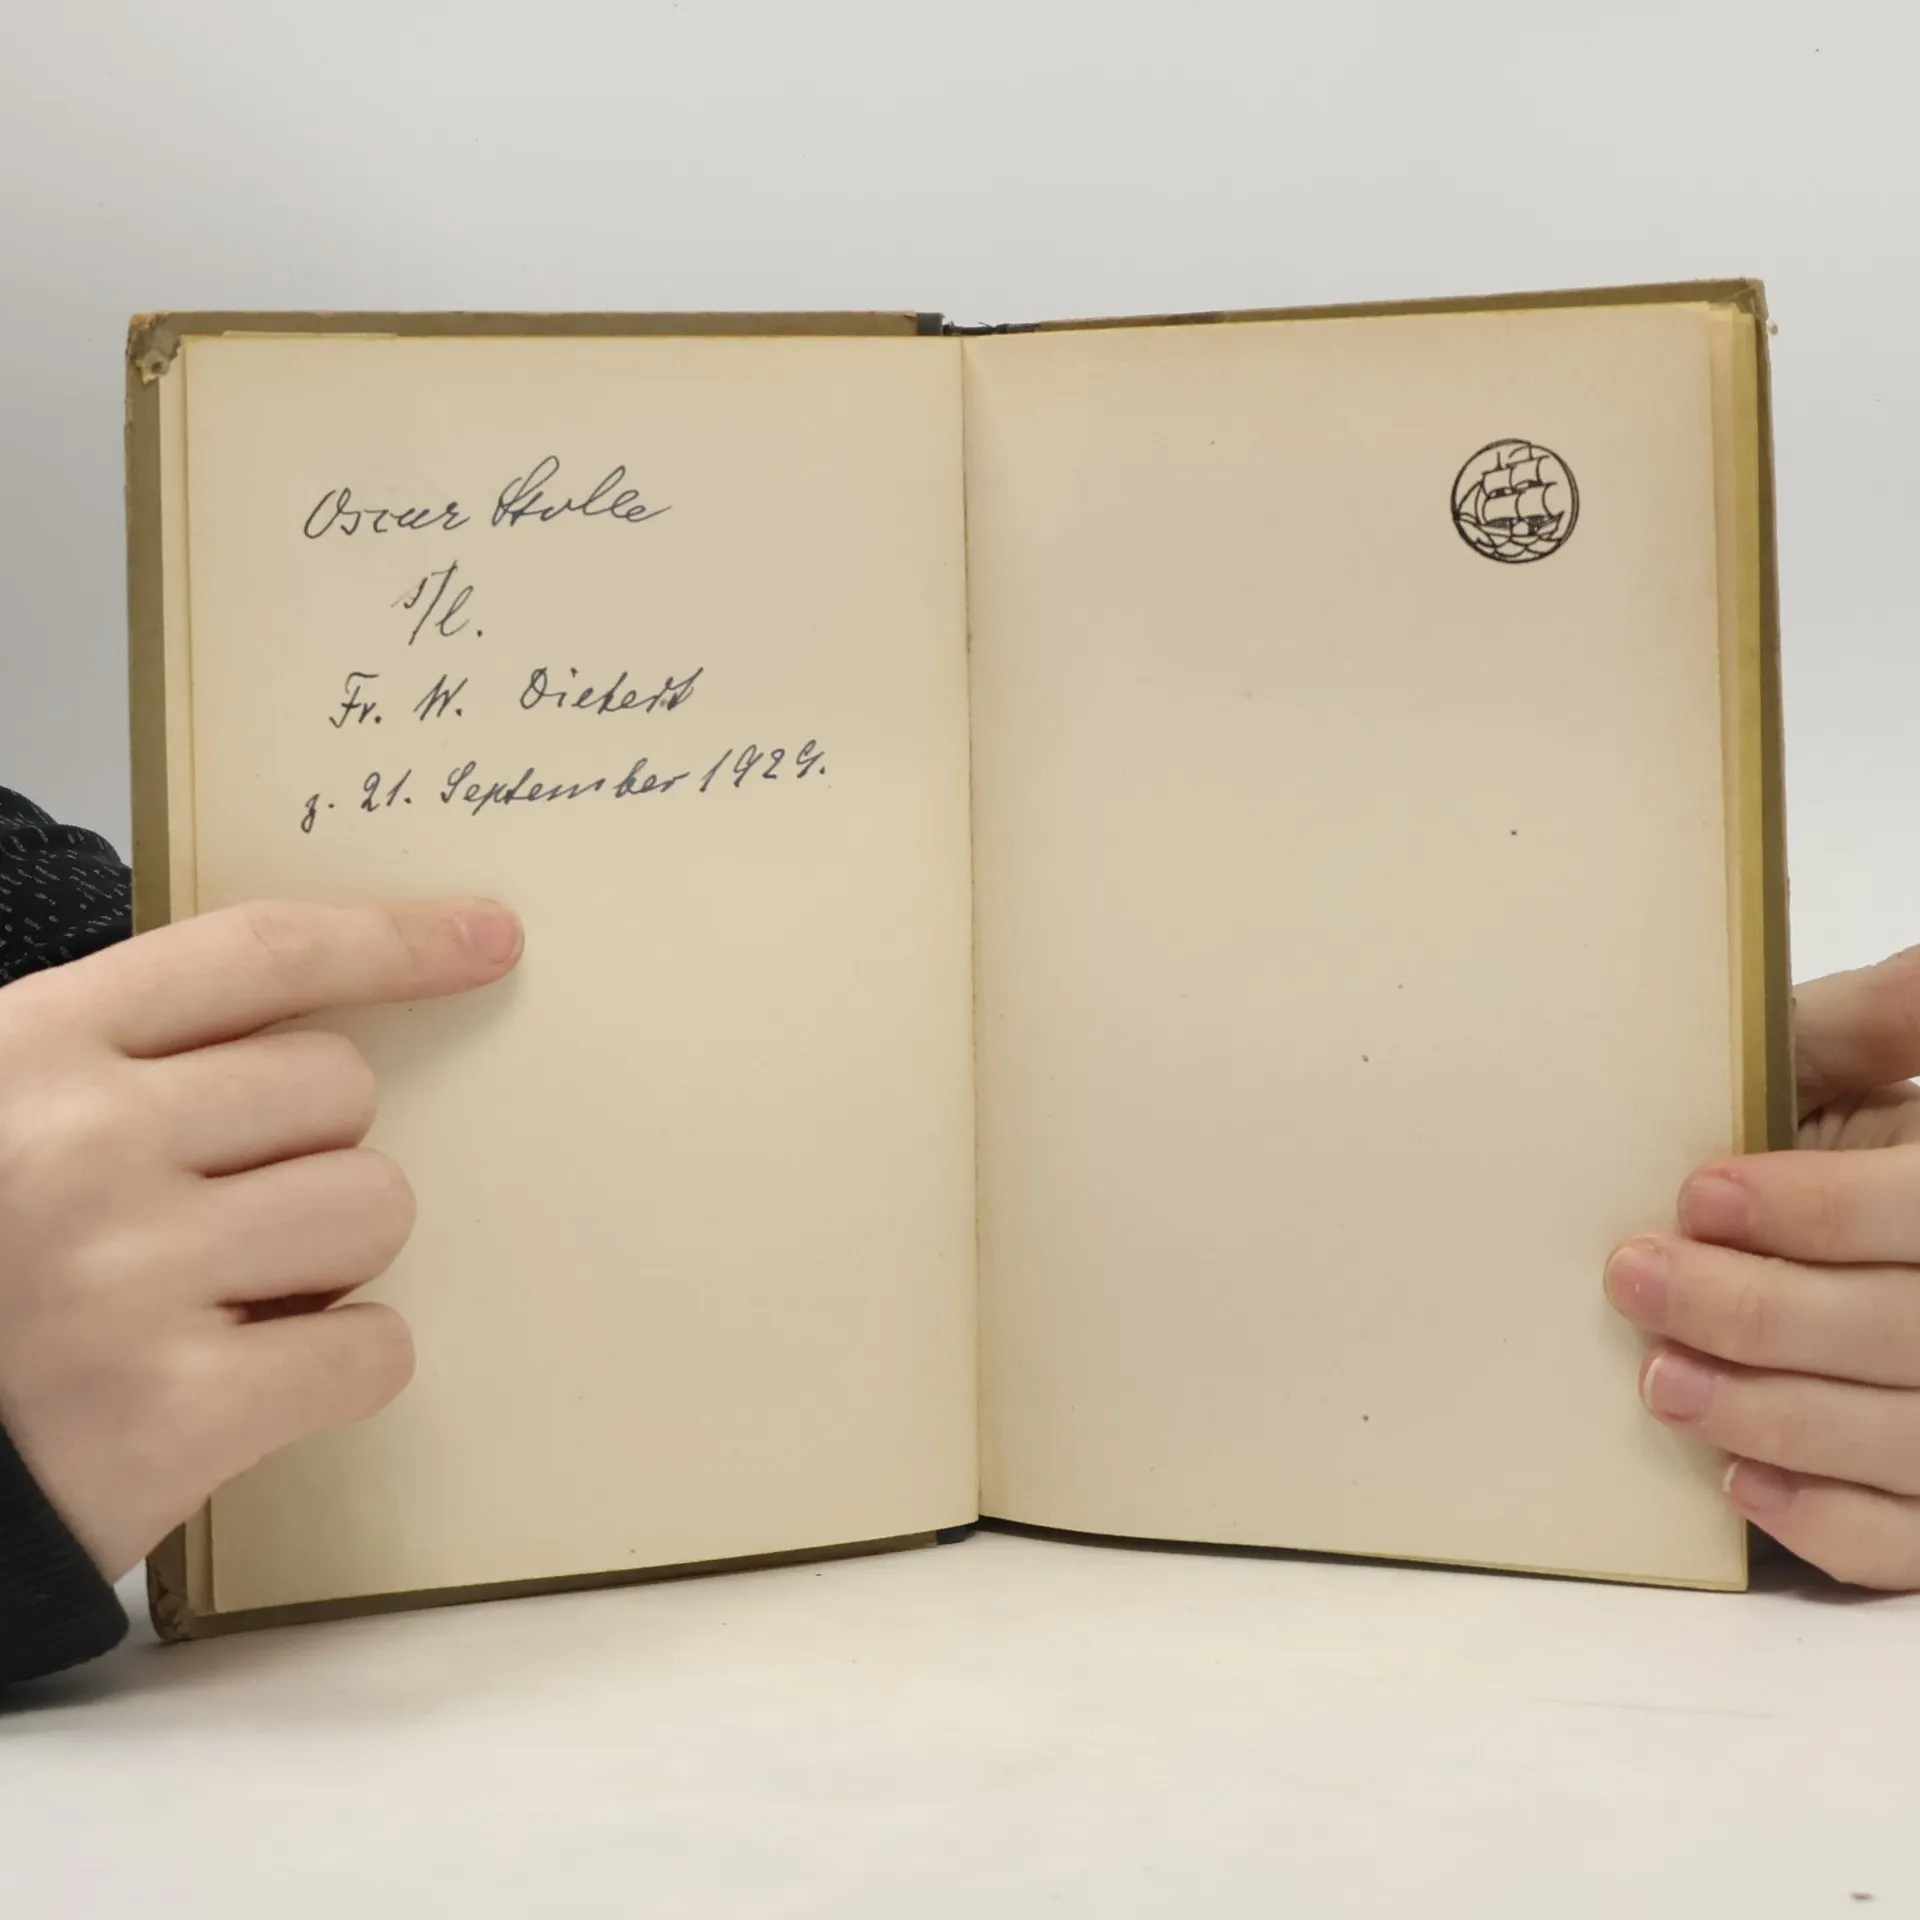 Oscar Stolle
s/l.
Fr. W. Dietert
z. 21. September 1929.